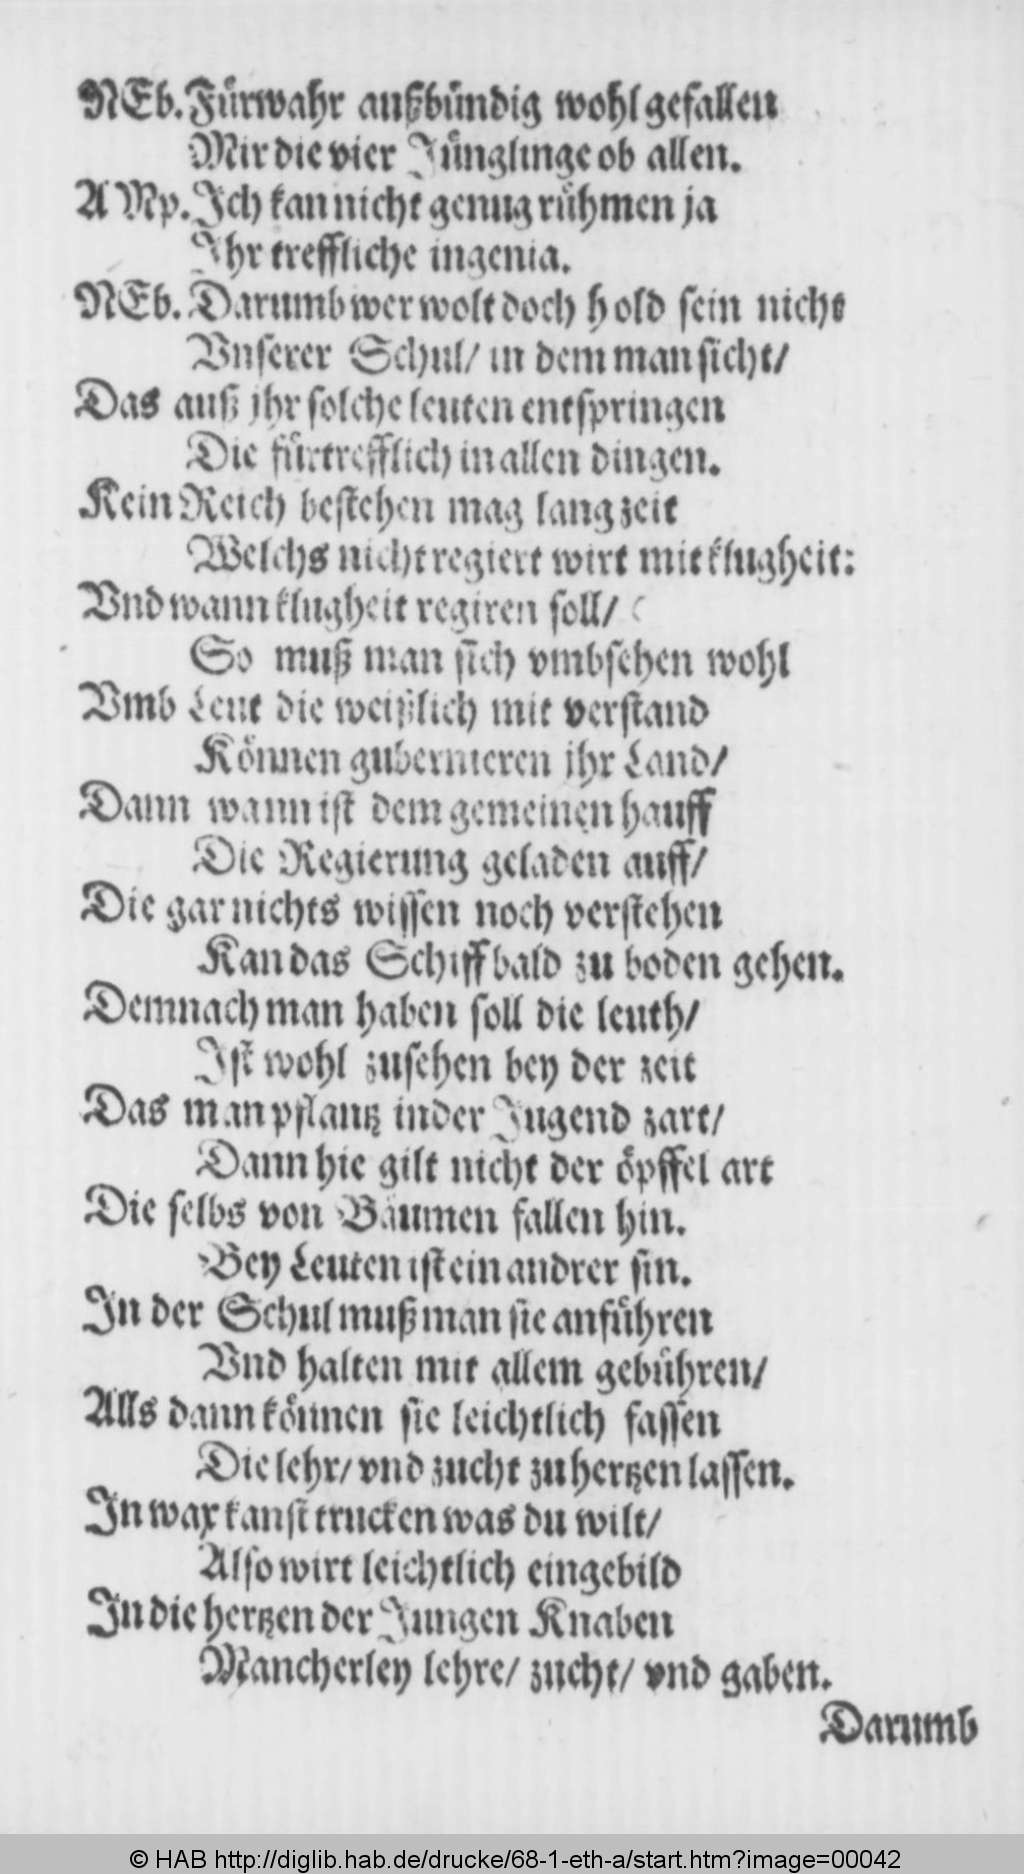 NEb. Fürwahr außbündig wohl gefallen
Mir die vier Jünglinge ob allen.
AMp. Ich kan nicht genug rühmen ja
Ihr treffliche ingenia.
NEb. Darumb wer wolt doch hold sein nicht
Vnserer Schul/ in dem man sicht/
Das auß jhr solche leuten entspringen
Die fürtrefflich in allen dingen.
Kein Reich bestehen mag lang zeit
Welchs nicht regiert wirt mit klugheit:
Vnd wann klugheit regiren soll/
So muß man sich vmbsehen wohl
Vmb Leut die weißlich mit verstand
Können gubernieren jhr Land/
Dann wann ist dem gemeinen hauff
Die Regierung geladen auff/
Die gar nichts wissen noch verstehen
Kan das Schiff bald zu boden gehen.
Demnach man haben soll die leuth/
Ist wohl zusehen bey der zeit
Das man pflantz in der Jugend zart/
Dann hie gilt nicht der öpffel art
Die selbs von Bäumen fallen hin.
Bey Leuten ist ein andrer sin.
In der Schul muß man sie anführen
Vnd halten mit allem gebühren/
Alls dann können sie leichtlich fassen
Die lehr/ vnd zucht zu hertzen lassen.
In wax kanst trucken was du wilt/
Also wirt leichtlich eingebild
In die hertzen der Jungen Knaben
Mancherley lehre/ zucht/ vnd gaben.
Darumb
© HAB http://diglib.hab.de/drucke/68-1-eth-a/start.htm?image=00042